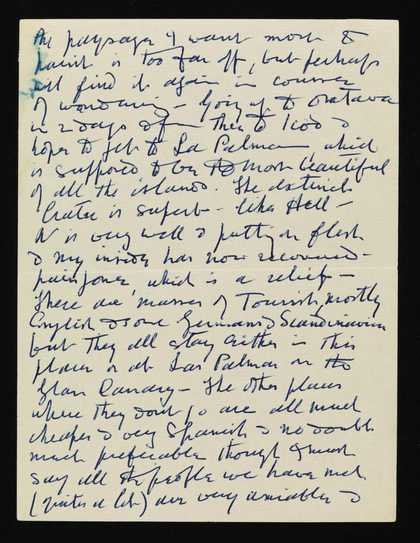 the paysage I want most to
paint is too far off, but perhaps
will find it again in course
of wandering - Going up to Oratava
in 2 days & then to Icod &
hope to get to La Palma which
is supposed to be the most beautiful
of all the islands. The extinct
Crater is superb - like Hell -
N is very well & putting on flesh
& my inside has now recovered -
pain gone, which is a relief -
There are masses of Tourists, mostly
English & some Germans & Scandinavians
but they all stay either in this
place or at Las Palmas on the
Gran Canary - The other places
where they dont go are all much
cheaper & very Spanish & no doubt
much preferable though I must
say all the people we have met
(quite a lot) are very amiable &